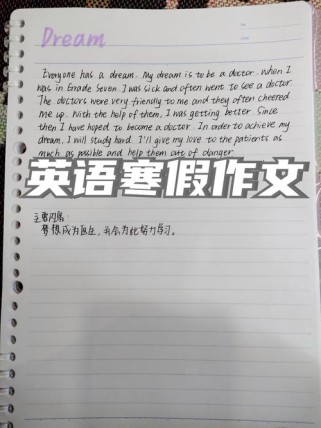 Dream
Everyone has a dream. My dream is to be a doctor. When I
was in Grade Seven. I was sick and often went to see a doctor.
The doctors were very friendly to me and they often cheered
me up. With the help of them, I was getting better. Since
then I have hoped to become a doctor. In order to achieve my
dream, I will study hard. I'll give my love to the patients as
much as possible and help them out of danger.
英语寒假作文
主要内容:
梦想成为医生,我会为此努力学习。